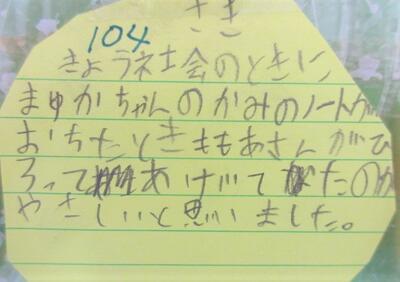 さき
104
きょうネ士会のときに
まゆかちゃんのかみのノートが
おちたときももあさんがひ
ろってあげいてたのが
やさしいと思いました。